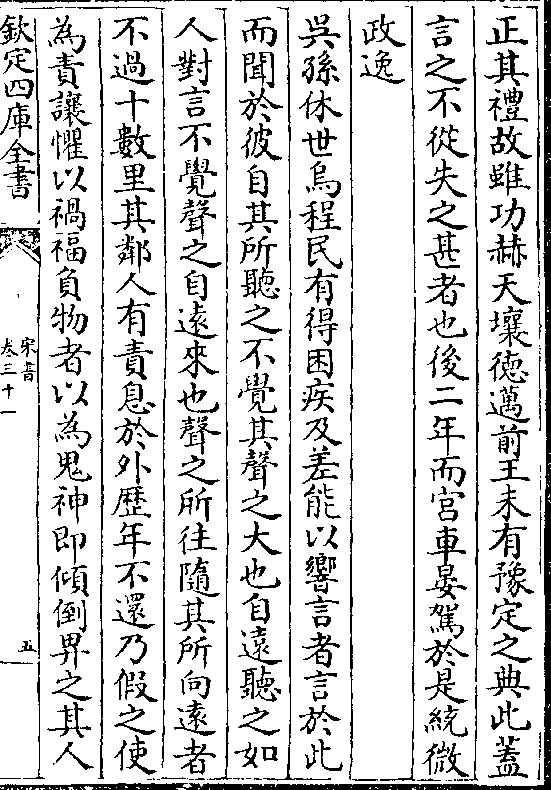 正其禮故雖功赫天壤德邁前王未有豫定之典此蓋
言之不從失之甚者也後二年而宮車晏駕於是統微
政逸
吳孫休世烏程民有得困疾及差能以響言者言於此
而聞於彼自其所聽之不覺其聲之大也自遠聽之如
人對言不覺聲之自遠來也聲之所往隨其所向遠者
不過十數里其鄰人有責息於外歷年不還乃假之使
為責讓懼以禍福負物者以為鬼神即傾倒畀之其人
欽定四庫全書
宋書
卷三十一
五